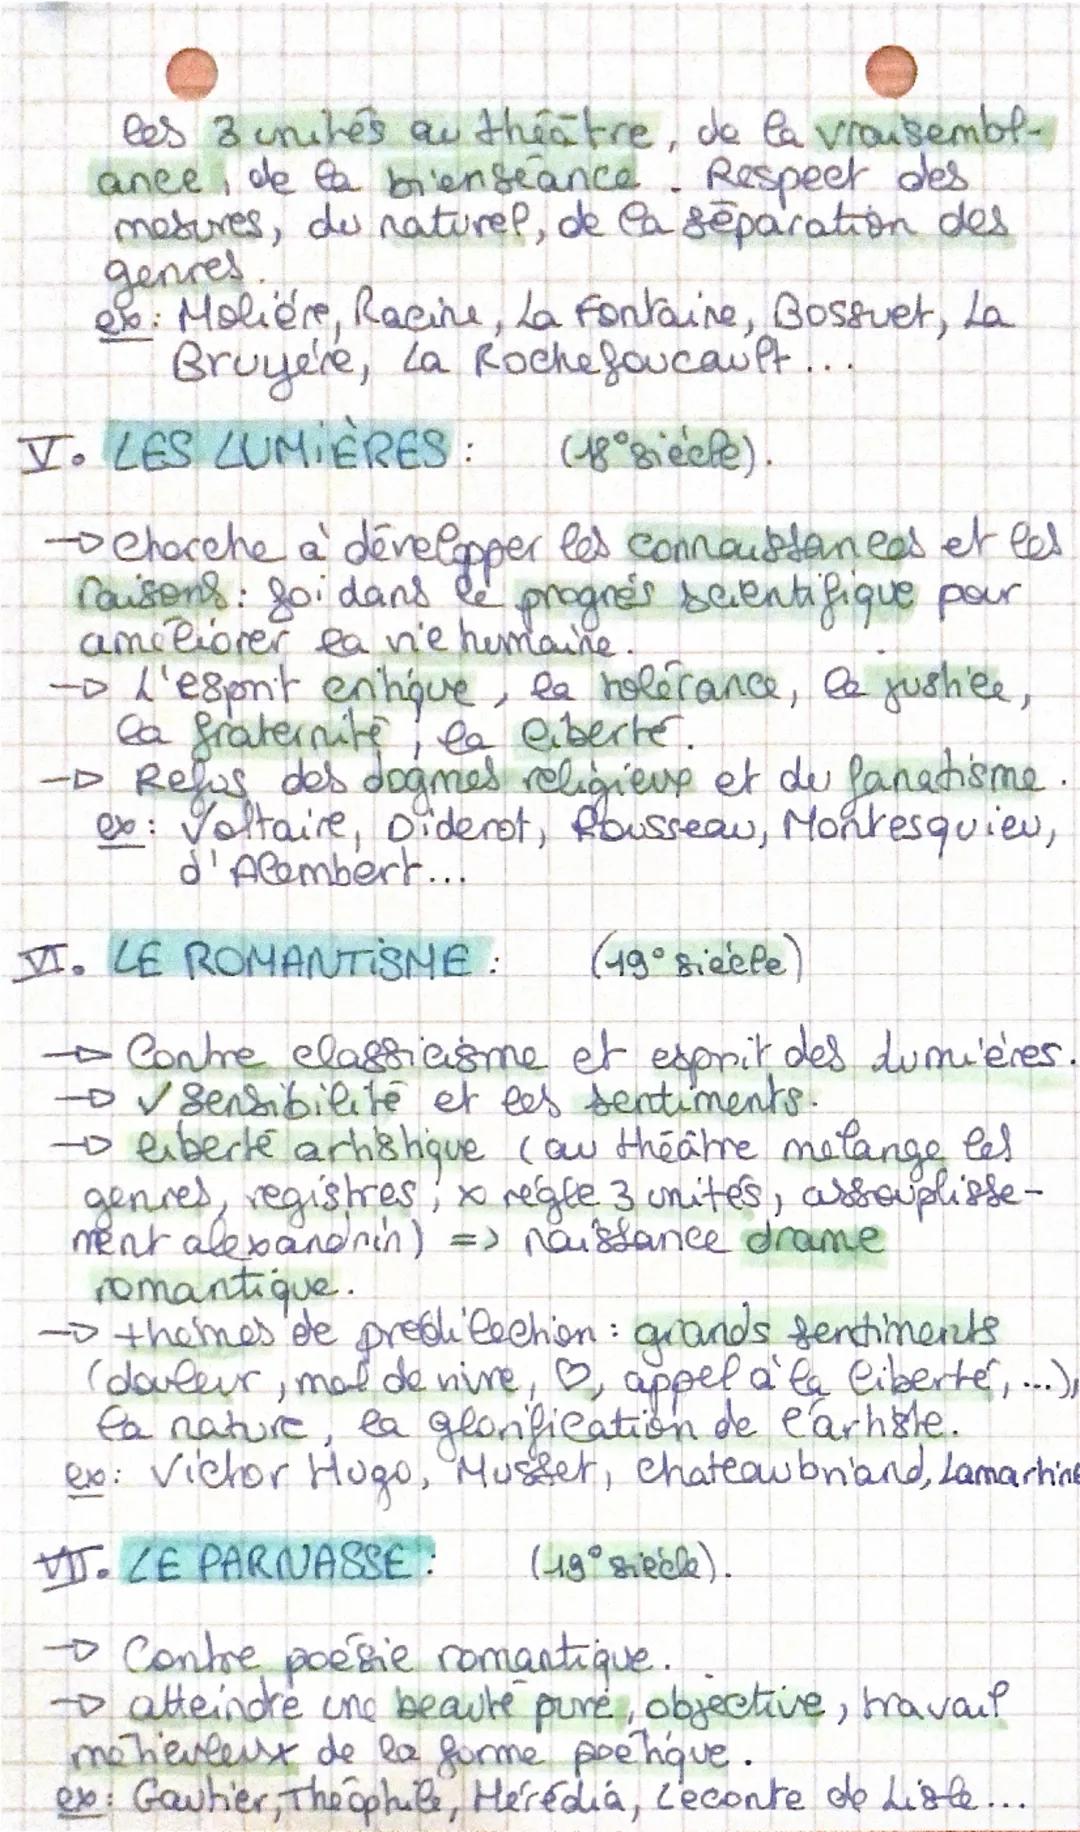 les 3 unités au théâtre, de la vraisembl-
ance, de la bienséance. Respect des
mesures, du naturel, de la séparation des
genres.
ex: Molière, Racine, La Fontaine, Bossuet, La
Bruyère, La Rochefoucault...
V. LES LUMIÈRES : (18° siècle).
→ Cherche à développer les connaissances et les
raisons : foi dans le progrès scientifique pour
améliorer la vie humaine.
→ L'esprit critique, la tolérance, la justice,
la fraternité, la liberté.
→ Refus des dogmes religieux et du fanatisme.
ex : Voltaire, Diderot, Rousseau, Montesquieu,
d'Alembert...
VI. LE ROMANTISME : (19° siècle)
→ Contre classicisme et esprit des Lumières.
→ ✓ Sensibilité et les sentiments.
→ liberté artistique (au théâtre mélange les
genres, registres, x règle 3 unités, assouplisse-
ment alexandrin) => naissance drame
romantique.
→ thèmes de prédilection : grands sentiments
(douleur, mal de vivre, ♡, appel à la liberté, ...),
la nature, la glorification de l'artiste.
ex: Victor Hugo, Musset, Chateaubriand, Lamartine
VII. LE PARNASSE : (19° siècle).
→ Contre poésie romantique.
→ atteindre une beauté pure, objective, travail
méticuleux de la forme poétique.
ex: Gautier, Théophile, Hérédia, Leconte de Lisle...